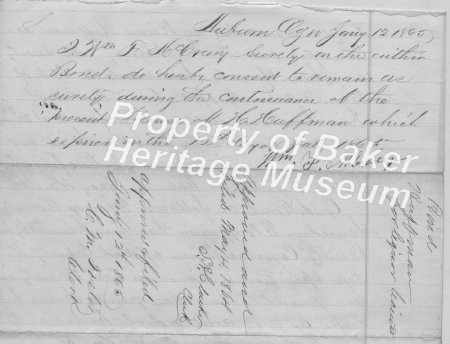 Auburn Ogn Jany 12 1865
I Wm F. McCrary Surety on the within
Bond, do hereby consent to remain as
surety during the continuance of the
present License of W H Huffman which
expires in the
Wm. F.
Property of Baker
Heritage Museum
Bond
Huffman
License
Approved and
filed May 4 1864
Clerk
approved & filed
Jany 12th 1865
C. M. Foster
Clerk